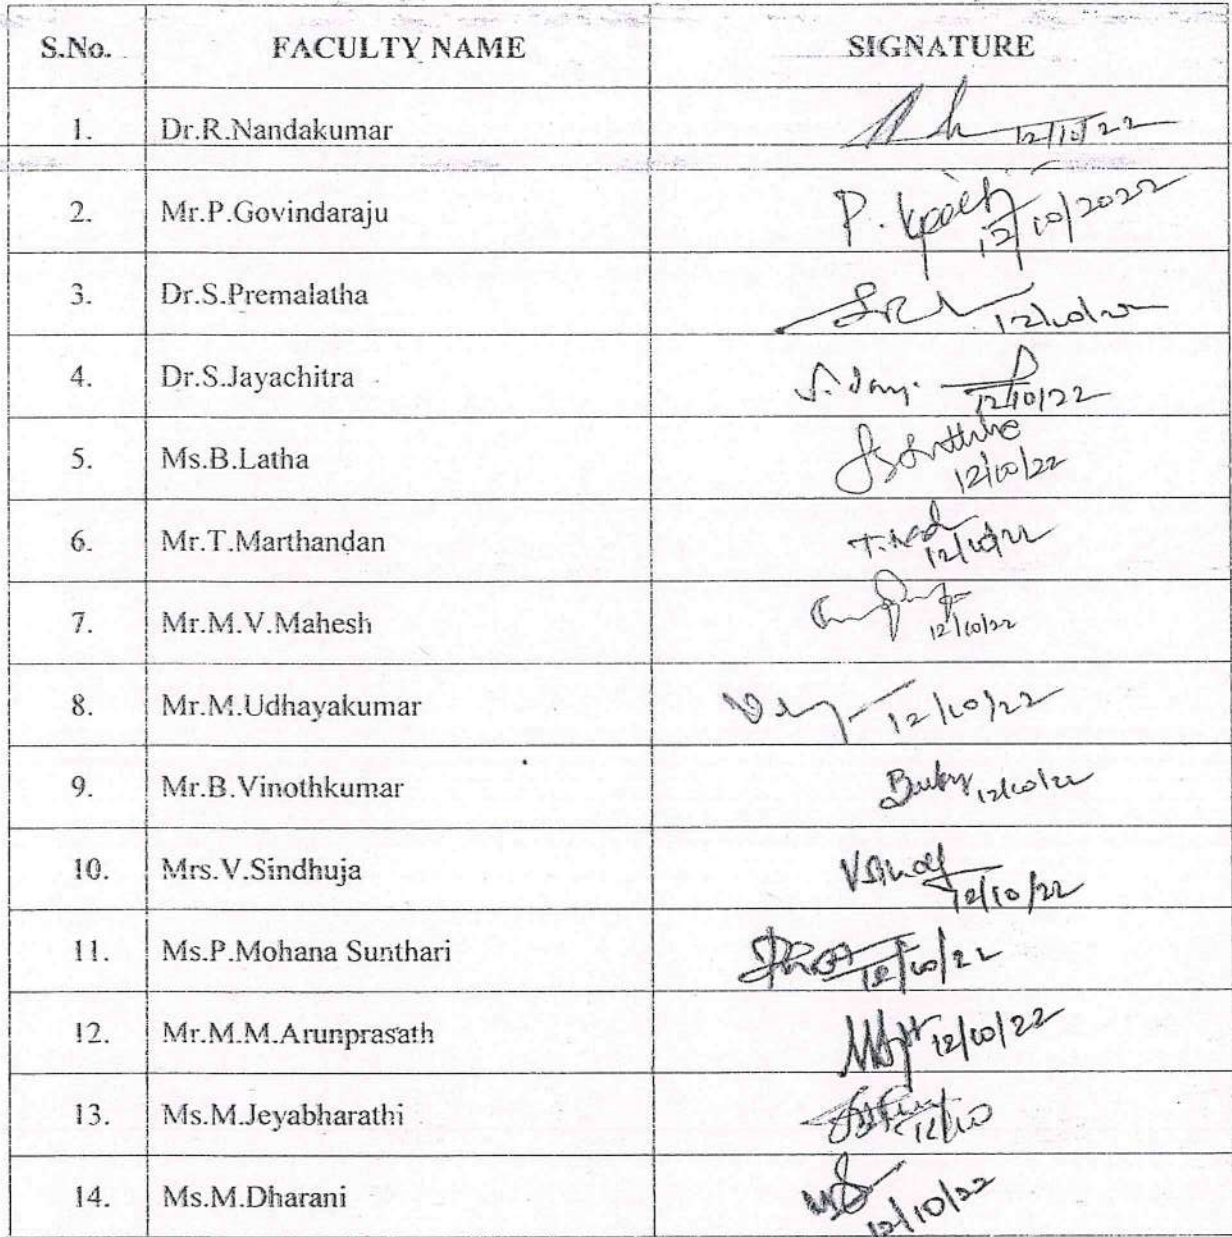 S.No. FACULTY NAME SIGNATURE
1. Dr.R.Nandakumar 12/10/22
2. Mr.P.Govindaraju P. 12/10/2022
3. Dr.S.Premalatha 12/10/22
4. Dr.S.Jayachitra 12/10/22
5. Ms.B.Latha 12/10/22
6. Mr.T.Marthandan 12/10/22
7. Mr.M.V.Mahesh 12/10/22
8. Mr.M.Udhayakumar 12/10/22
9. Mr.B.Vinothkumar 12/10/22
10. Mrs.V.Sindhuja 12/10/22
11. Ms.P.Mohana Sunthari 12/10/22
12. Mr.M.M.Arunprasath 12/10/22
13. Ms.M.Jeyabharathi 12/10
14. Ms.M.Dharani 12/10/22